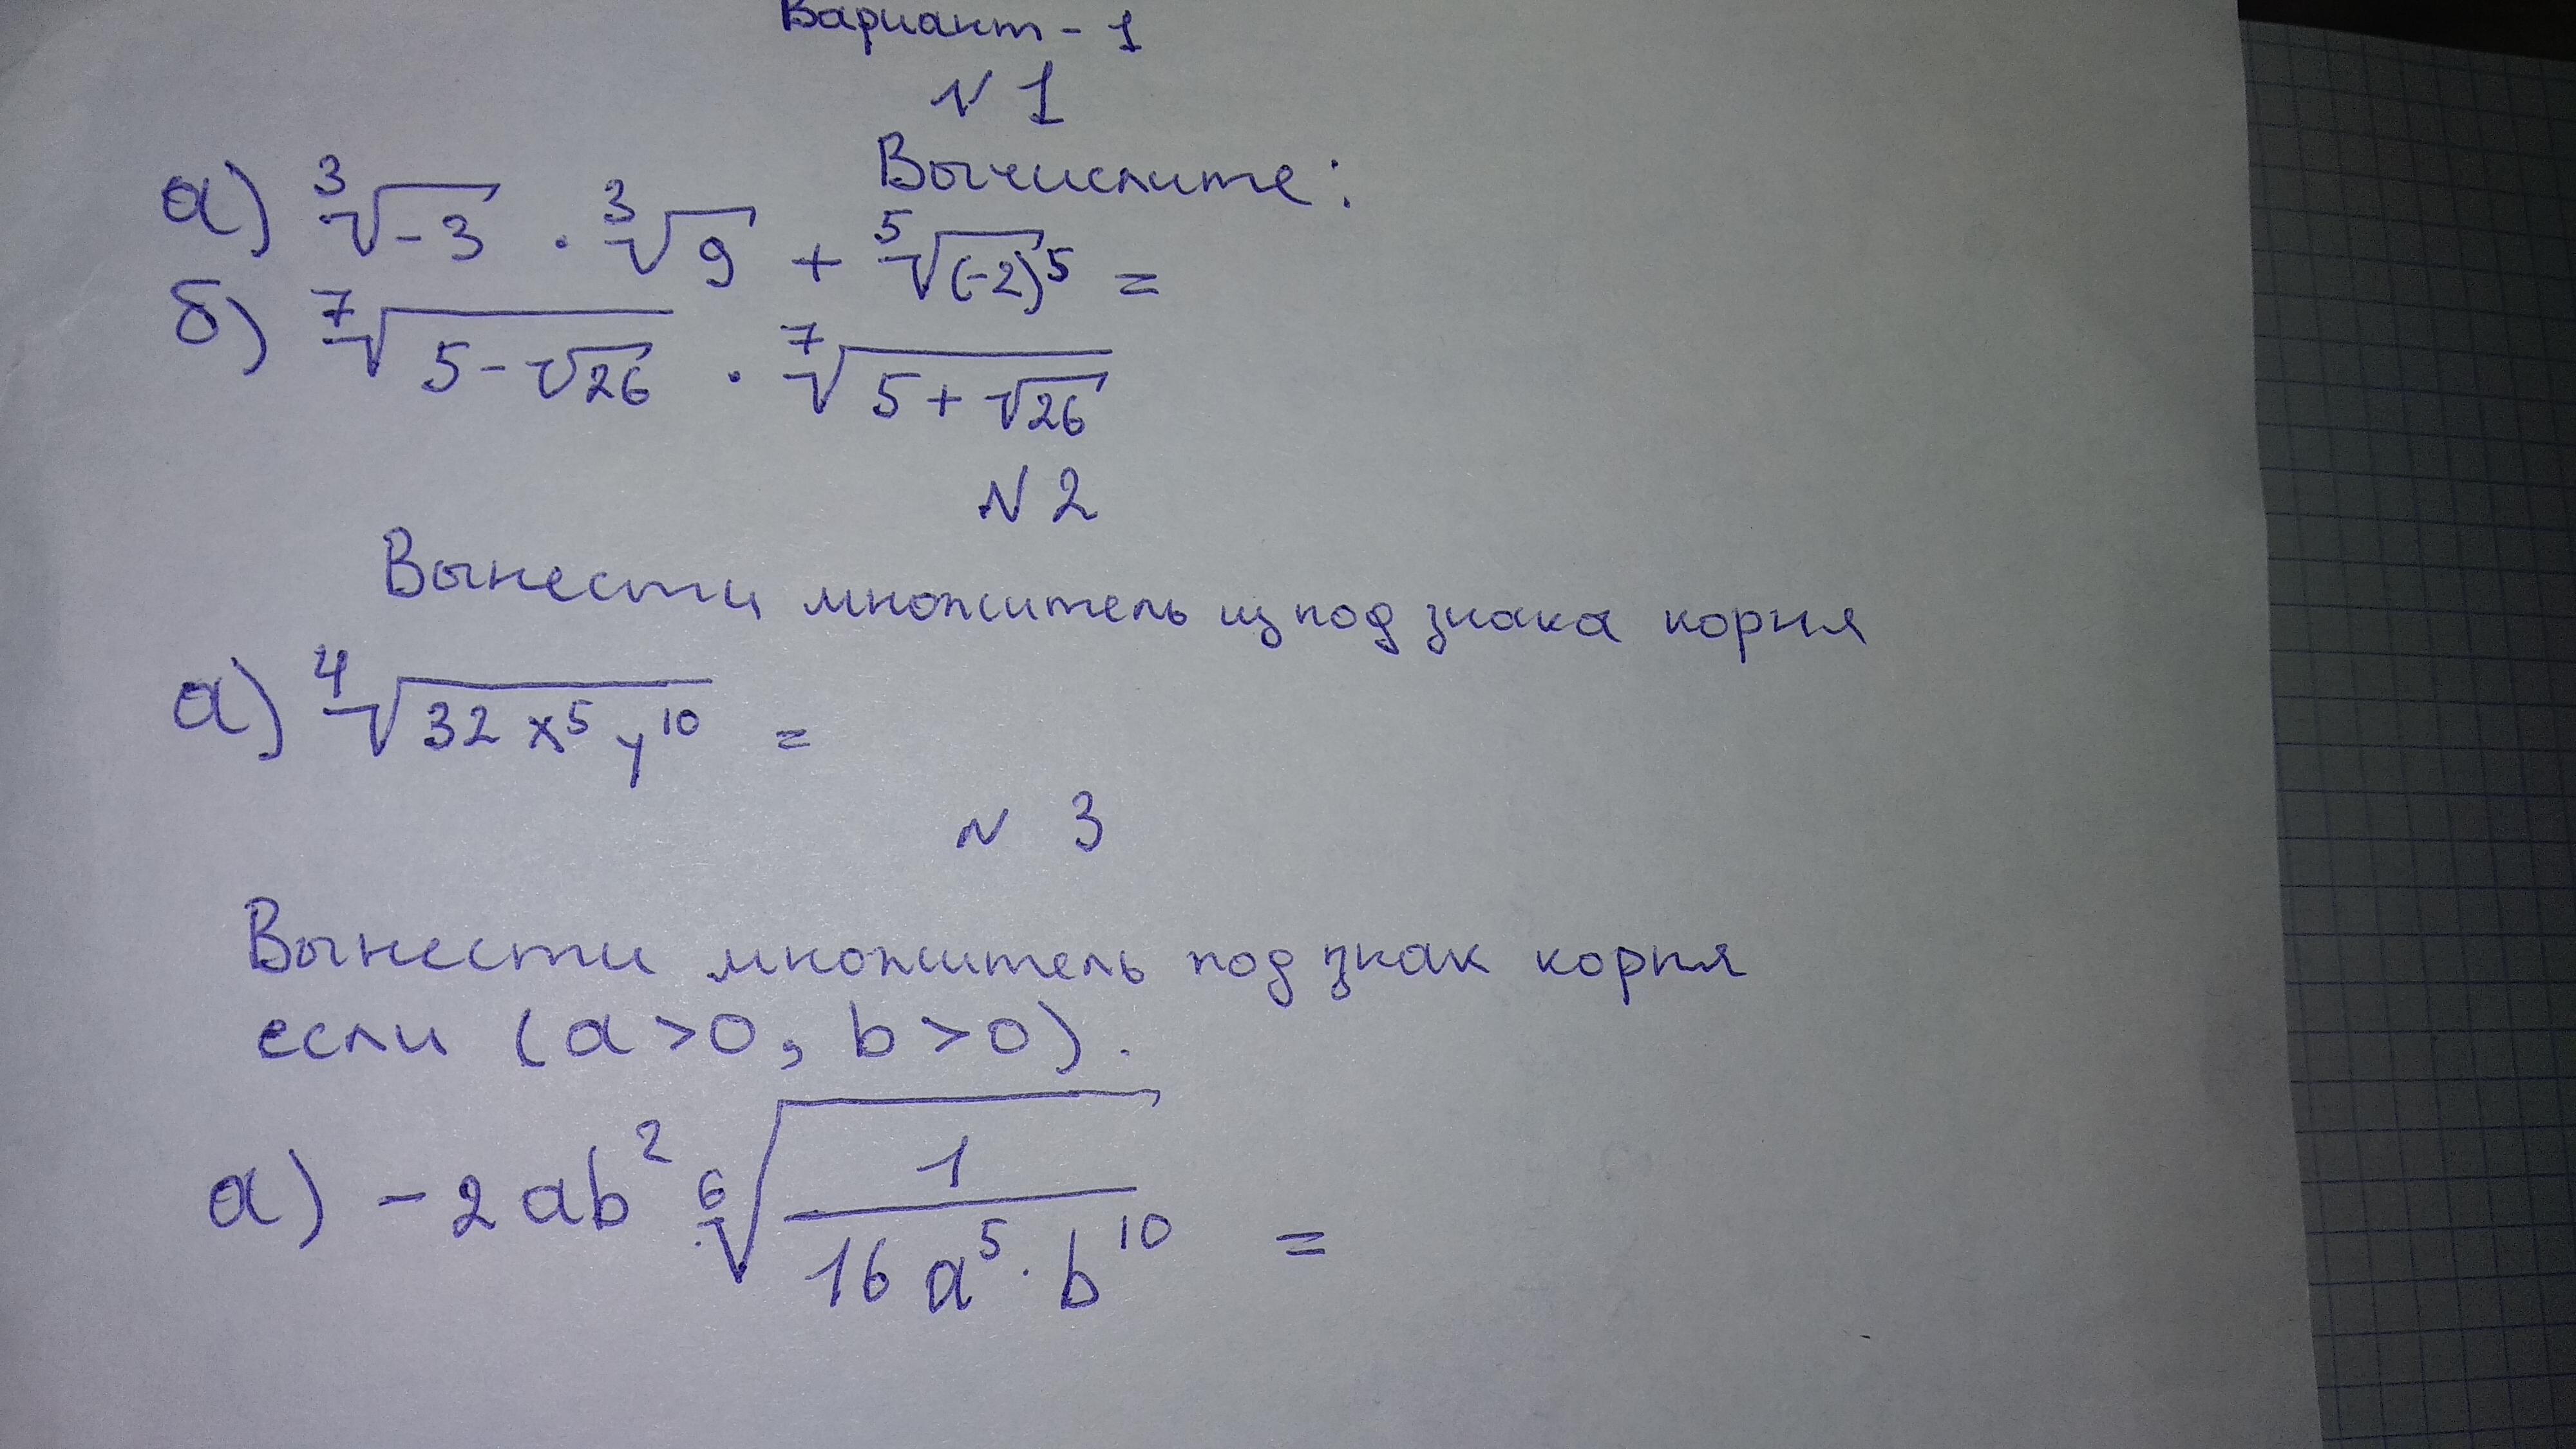 Вариант - 1
N 1
Вычислите:
а) ∛-3 · ∛9 + ⁵√(-2)⁵ =
б) ⁷√(5-√26) · ⁷√(5+√26)
N 2
Вынести множитель из под знака корня
а) ⁴√(32x⁵y¹⁰) =
N 3
Вынести множитель под знак корня
если (a>0, b>0).
а) -2ab² ⁶√(1/(16a⁵·b¹⁰)) =